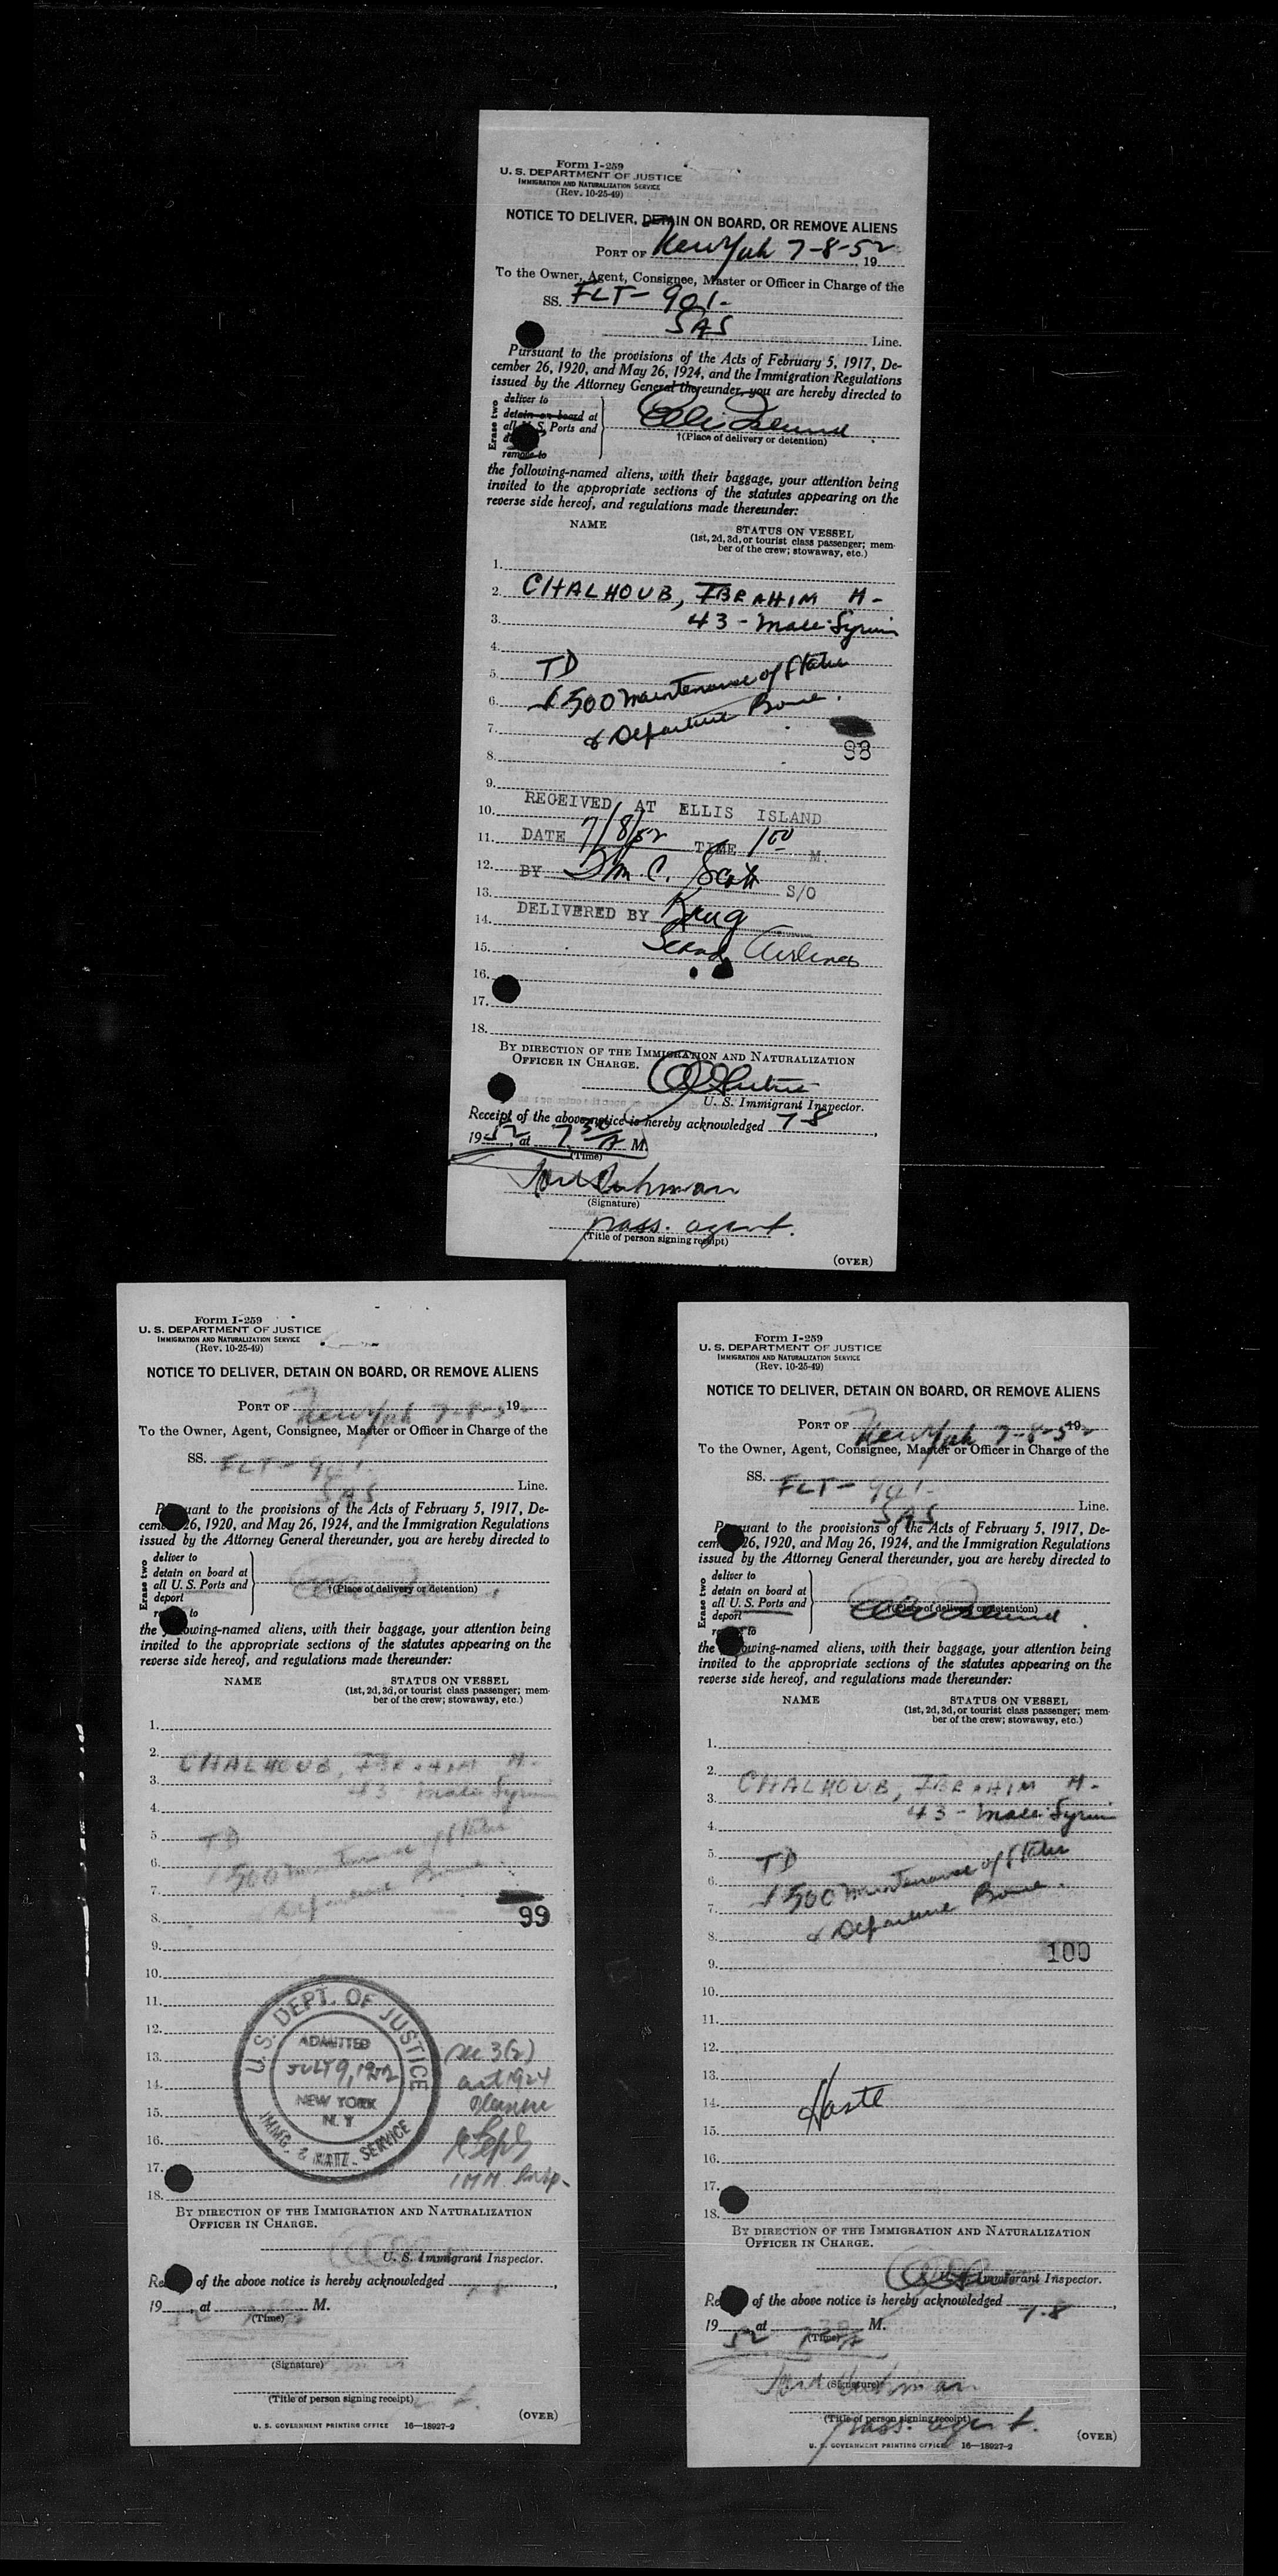 Form I-259
U. S. DEPARTMENT OF JUSTICE
IMMIGRATION AND NATURALIZATION SERVICE
(Rev. 10-25-49)
NOTICE TO DELIVER, DETAIN ON BOARD, OR REMOVE ALIENS
PORT OF New York 7-8-52 19
To the Owner, Agent, Consignee, Master or Officer in Charge of the
SS. FLT- 901-
SAS Line.
Pursuant to the provisions of the Acts of February 5, 1917, De-
cember 26, 1920, and May 26, 1924, and the Immigration Regulations
issued by the Attorney General thereunder, you are hereby directed to
Erase two
deliver to
detain on board at
all U. S. Ports and
remove to
Ellis Island
†(Place of delivery or detention)
the following-named aliens, with their baggage, your attention being
invited to the appropriate sections of the statutes appearing on the
reverse side hereof, and regulations made thereunder:
NAME STATUS ON VESSEL
(1st, 2d, 3d, or tourist class passenger; mem-
ber of the crew; stowaway, etc.)
1.
2. CHALHOUB, IBRAHIM H-
3. 43 - male Syrian
4.
5. TD
6. $500 maintenance of Status
7. & Departure Bond.
98
8.
9.
10. RECEIVED AT ELLIS ISLAND
11. DATE 7/8/52 TIME 1 00 M.
12. BY Wm. C. Scott S/O
13.
14. DELIVERED BY Krug
15. Scand. Airlines
16.
17.
18.
BY DIRECTION OF THE IMMIGRATION AND NATURALIZATION
OFFICER IN CHARGE.
U. S. Immigrant Inspector.
Receipt of the above notice is hereby acknowledged 7-8,
1952, at 7 30 A M.
(Time)
(Signature)
pass. agent.
(Title of person signing receipt)
(OVER)
Form I-259
U. S. DEPARTMENT OF JUSTICE
IMMIGRATION AND NATURALIZATION SERVICE
(Rev. 10-25-49)
NOTICE TO DELIVER, DETAIN ON BOARD, OR REMOVE ALIENS
PORT OF New York 7-8-52 19
To the Owner, Agent, Consignee, Master or Officer in Charge of the
SS. FLT- 901-
SAS Line.
uant to the provisions of the Acts of February 5, 1917, De-
cem 26, 1920, and May 26, 1924, and the Immigration Regulations
issued by the Attorney General thereunder, you are hereby directed to
Erase two
deliver to
detain on board at
all U. S. Ports and
deport
to
†(Place of delivery or detention)
the owing-named aliens, with their baggage, your attention being
invited to the appropriate sections of the statutes appearing on the
reverse side hereof, and regulations made thereunder:
NAME STATUS ON VESSEL
(1st, 2d, 3d, or tourist class passenger; mem-
ber of the crew; stowaway, etc.)
1.
2. CHALHOUB, IBRAHIM H-
3. 43 - male Syrian
4.
5. TD
6. $500 maintenance of Status
7. & Departure Bond.
99
8.
9.
10.
11.
12.
13.
14.
15.
16.
17.
18.
U. S. DEPT. OF JUSTICE
ADMITTED
JULY 9, 1952
NEW YORK
N. Y
IMMG. & NATZ. SERVICE
sec 3(2)
act 1924
IMM. Insp.
BY DIRECTION OF THE IMMIGRATION AND NATURALIZATION
OFFICER IN CHARGE.
U. S. Immigrant Inspector.
Re of the above notice is hereby acknowledged 7-8,
1952, at M.
(Time)
(Signature)
(Title of person signing receipt)
(OVER)
U. S. GOVERNMENT PRINTING OFFICE 16—18927-2
Form I-259
U. S. DEPARTMENT OF JUSTICE
IMMIGRATION AND NATURALIZATION SERVICE
(Rev. 10-25-49)
NOTICE TO DELIVER, DETAIN ON BOARD, OR REMOVE ALIENS
PORT OF New York 7-8-52 19
To the Owner, Agent, Consignee, Master or Officer in Charge of the
SS. FLT- 901-
SAS Line.
uant to the provisions of the Acts of February 5, 1917, De-
cem 26, 1920, and May 26, 1924, and the Immigration Regulations
issued by the Attorney General thereunder, you are hereby directed to
Erase two
deliver to
detain on board at
all U. S. Ports and
deport
to
Ellis Island
†(Place of delivery or detention)
the owing-named aliens, with their baggage, your attention being
invited to the appropriate sections of the statutes appearing on the
reverse side hereof, and regulations made thereunder:
NAME STATUS ON VESSEL
(1st, 2d, 3d, or tourist class passenger; mem-
ber of the crew; stowaway, etc.)
1.
2.
3. CHALHOUB, IBRAHIM H-
43 - male Syrian
4.
5. TD
6. $500 maintenance of Status
7. & Departure Bond.
8.
100
9.
10.
11.
12.
13.
14. Haste
15.
16.
17.
18.
BY DIRECTION OF THE IMMIGRATION AND NATURALIZATION
OFFICER IN CHARGE.
Immigrant Inspector.
Re of the above notice is hereby acknowledged 7-8,
1952, at 7 30 A M.
(Time)
(Signature)
(Title of person signing receipt)
pass. agent.
(OVER)
U. S. GOVERNMENT PRINTING OFFICE 16—18927-2